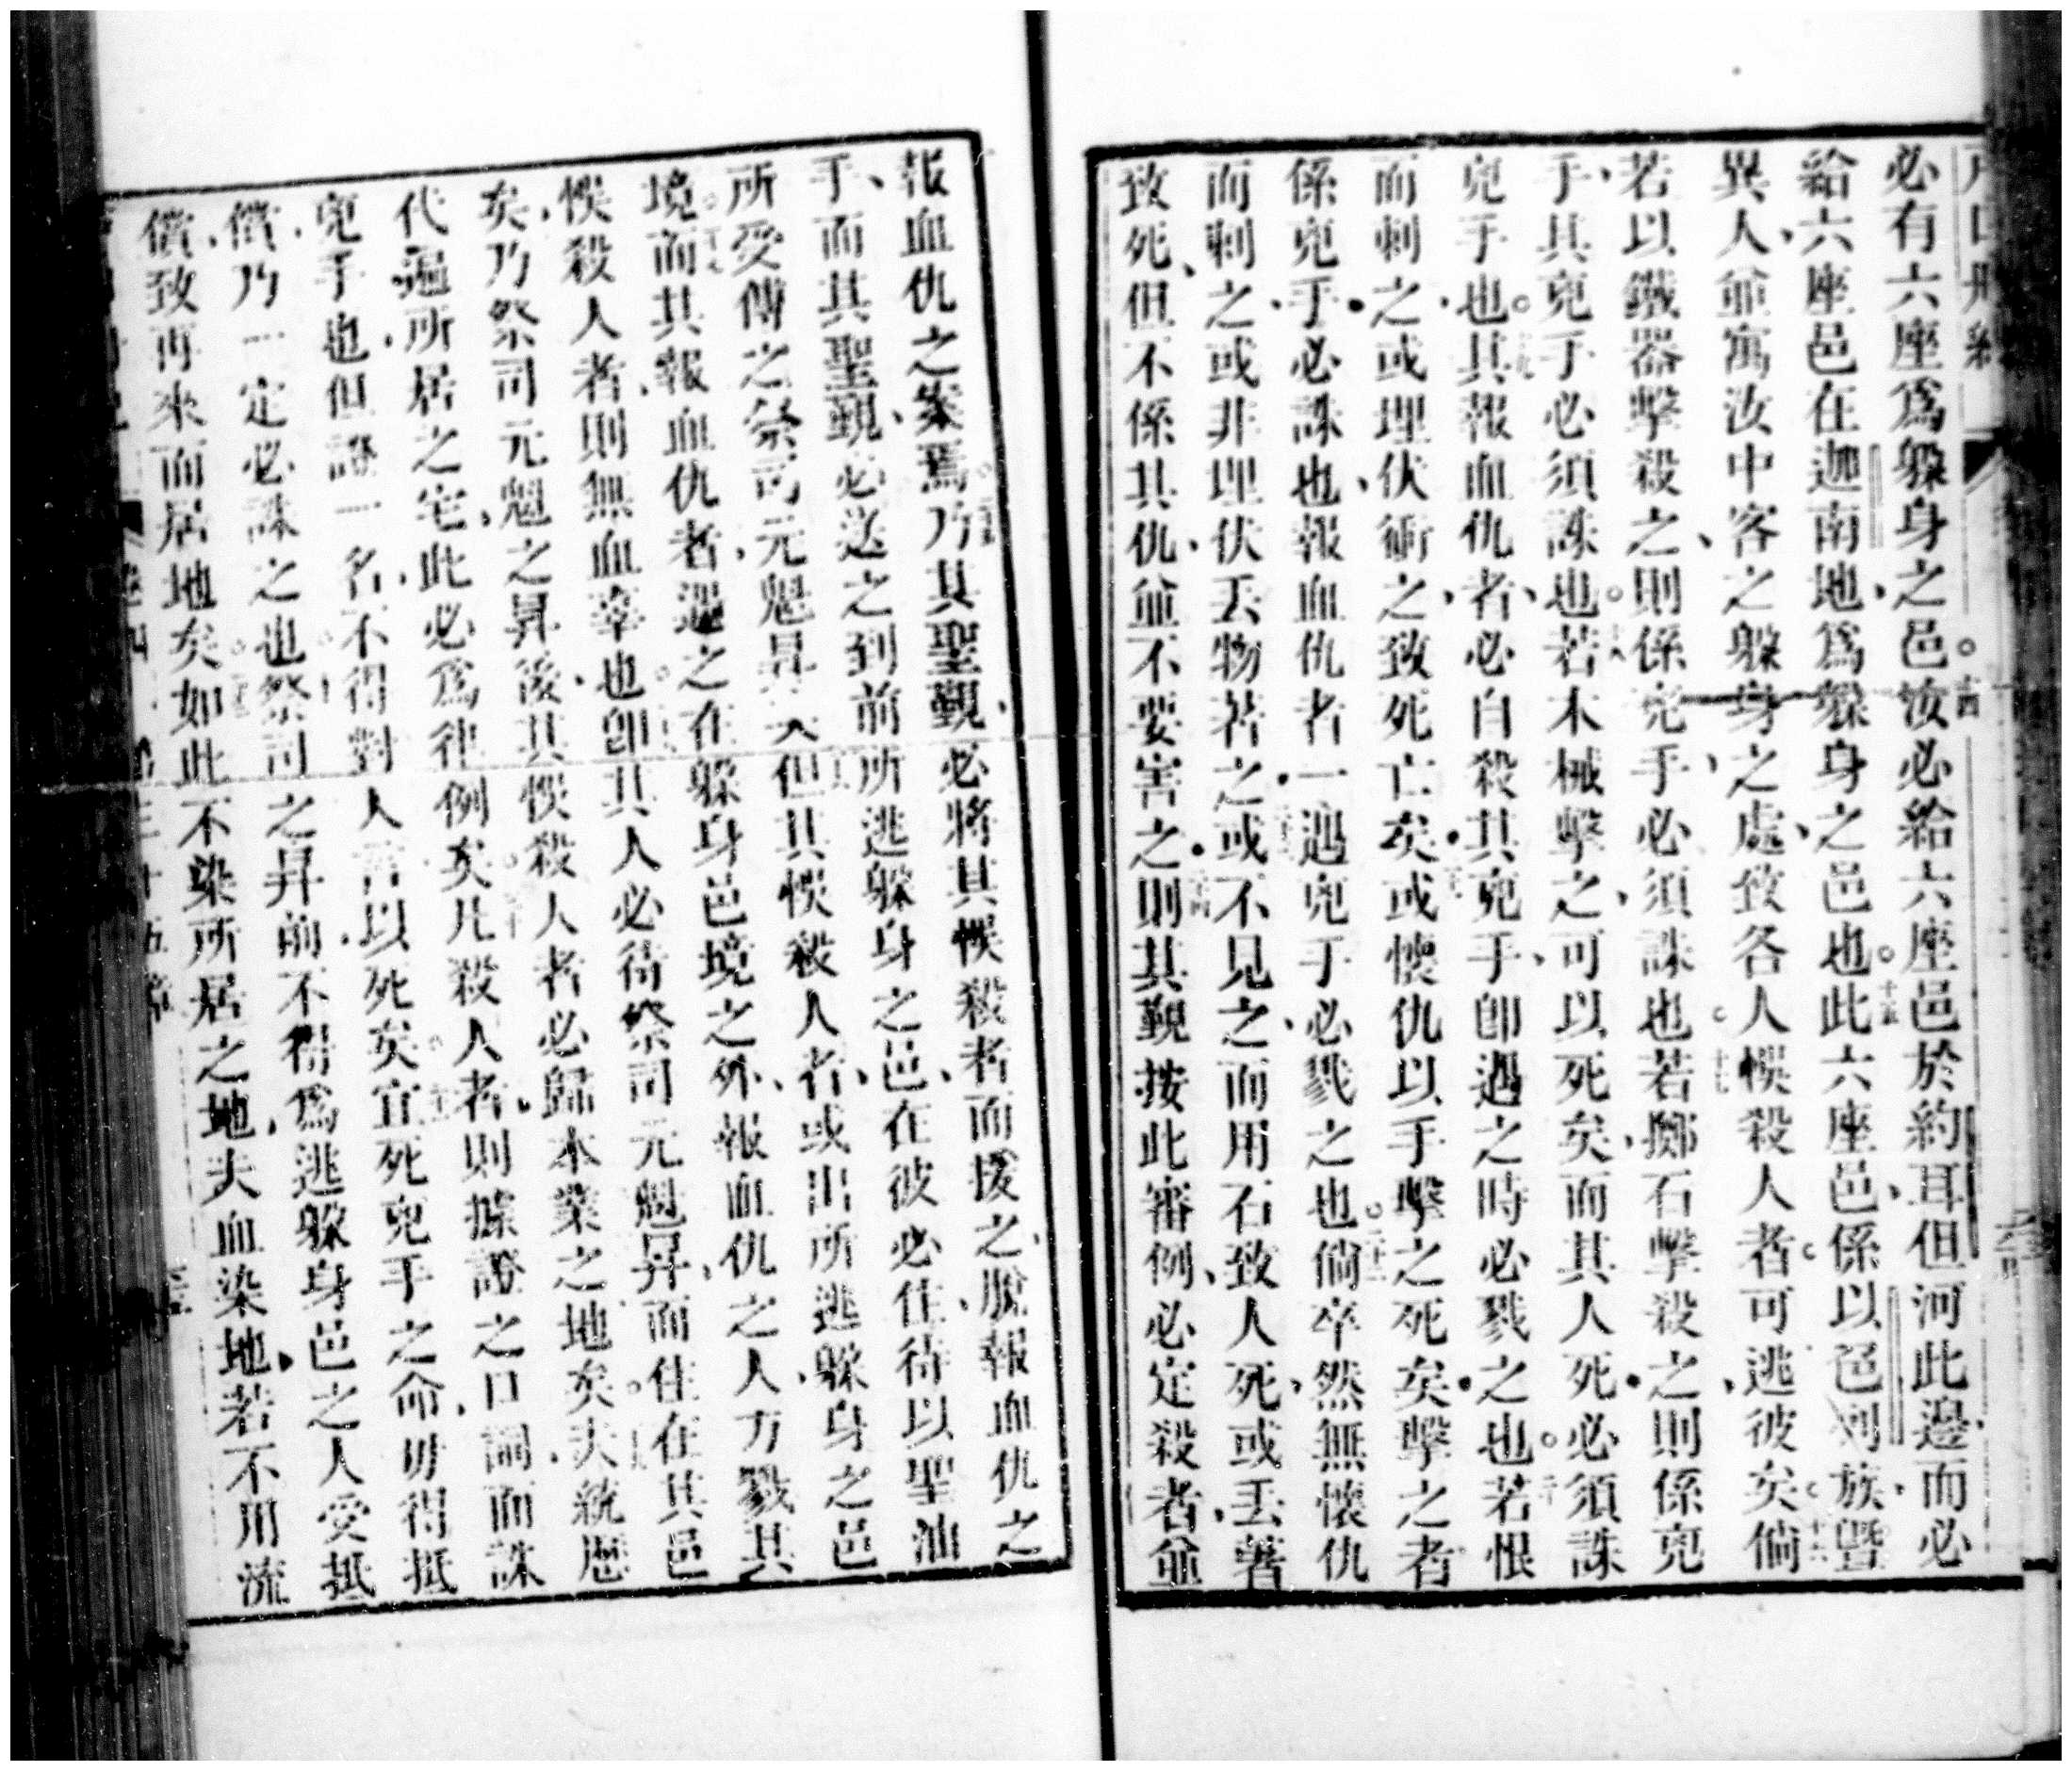 戶口冊紀
必有六座爲躱身之邑。十四汝必給六座邑於約耳但河此邊而必
給六座邑在迦南地、爲躱身之邑也。十五此六座邑、係以色列族、曁
異人、並寓汝中客之躱身之處、致各人悞殺人者可逃彼矣。十六倘
若以鐵器擊殺之、則係兇手、必須誅也。十七若擲石擊殺之、則係兇
手、其兇手必須誅也。十八若木械擊之、可以死矣、而其人死、必須誅
兇手也。十九其報血仇者、必自殺其兇手、卽遇之時必戮之也。二十若恨
而刺之、或理伏衚之、致死亡矣、或懷仇以手擊之死矣、擊之者
係兇手、必誅也、報血仇者一遇兇手必戮之也。二十二倘卒然無懷仇
而剌之、或非埋伏丟物著之、或不見之、而用石致人死、或丟著
致死、但不係其仇、並不要害之、二十四則其覲按此審例、必定殺者、並
報血仇之案焉。二十五乃其聖覲、必將其悞殺者而援之、脫報血仇之
手、而其聖覲、必送之到前所逃躱身之邑、在彼必住待以聖油
所受傅之祭司元魁昇天但其悞殺人者、或出所逃躱身之邑
境。而其報血仇者、遇之在躱身邑境之外、報血仇之人方戮其
悞殺人者、則無血辜也。卽其人必待祭司元魁昇、而住在其邑
矣、乃祭司元魁之昇後、其悞殺人者必歸本業之地矣。夫統歷
代遍所居之宅、此必爲律例矣。三十凡殺人者、則據證之口詞而誅
兇手也、但證一名、不得對人言以死矣。宜死兇手之命、毋得抵
償、乃一定必誅之也。祭司之昇前、不得爲逃躱身邑之人受抵
償、致再來而居地矣。如此不染所居之地、夫血染地、若不用流
三十五章